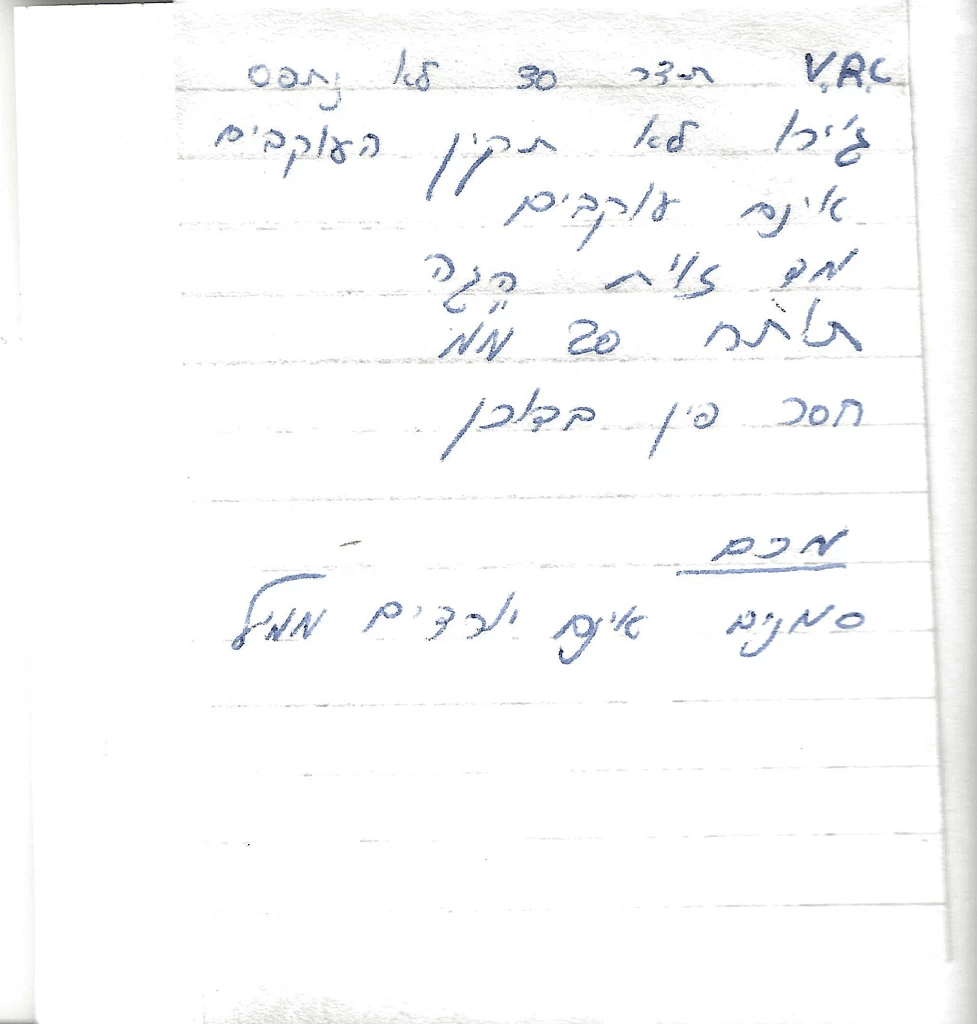 V.R.C תדר 30 לא נתפס
ג'ירו לא תקין העוקבים
אינם עוקבים
מד זוית הגה
תותח 20 מ"מ
חסר פין בבוכן
מכם
סמנים אינם יורדים ממיל